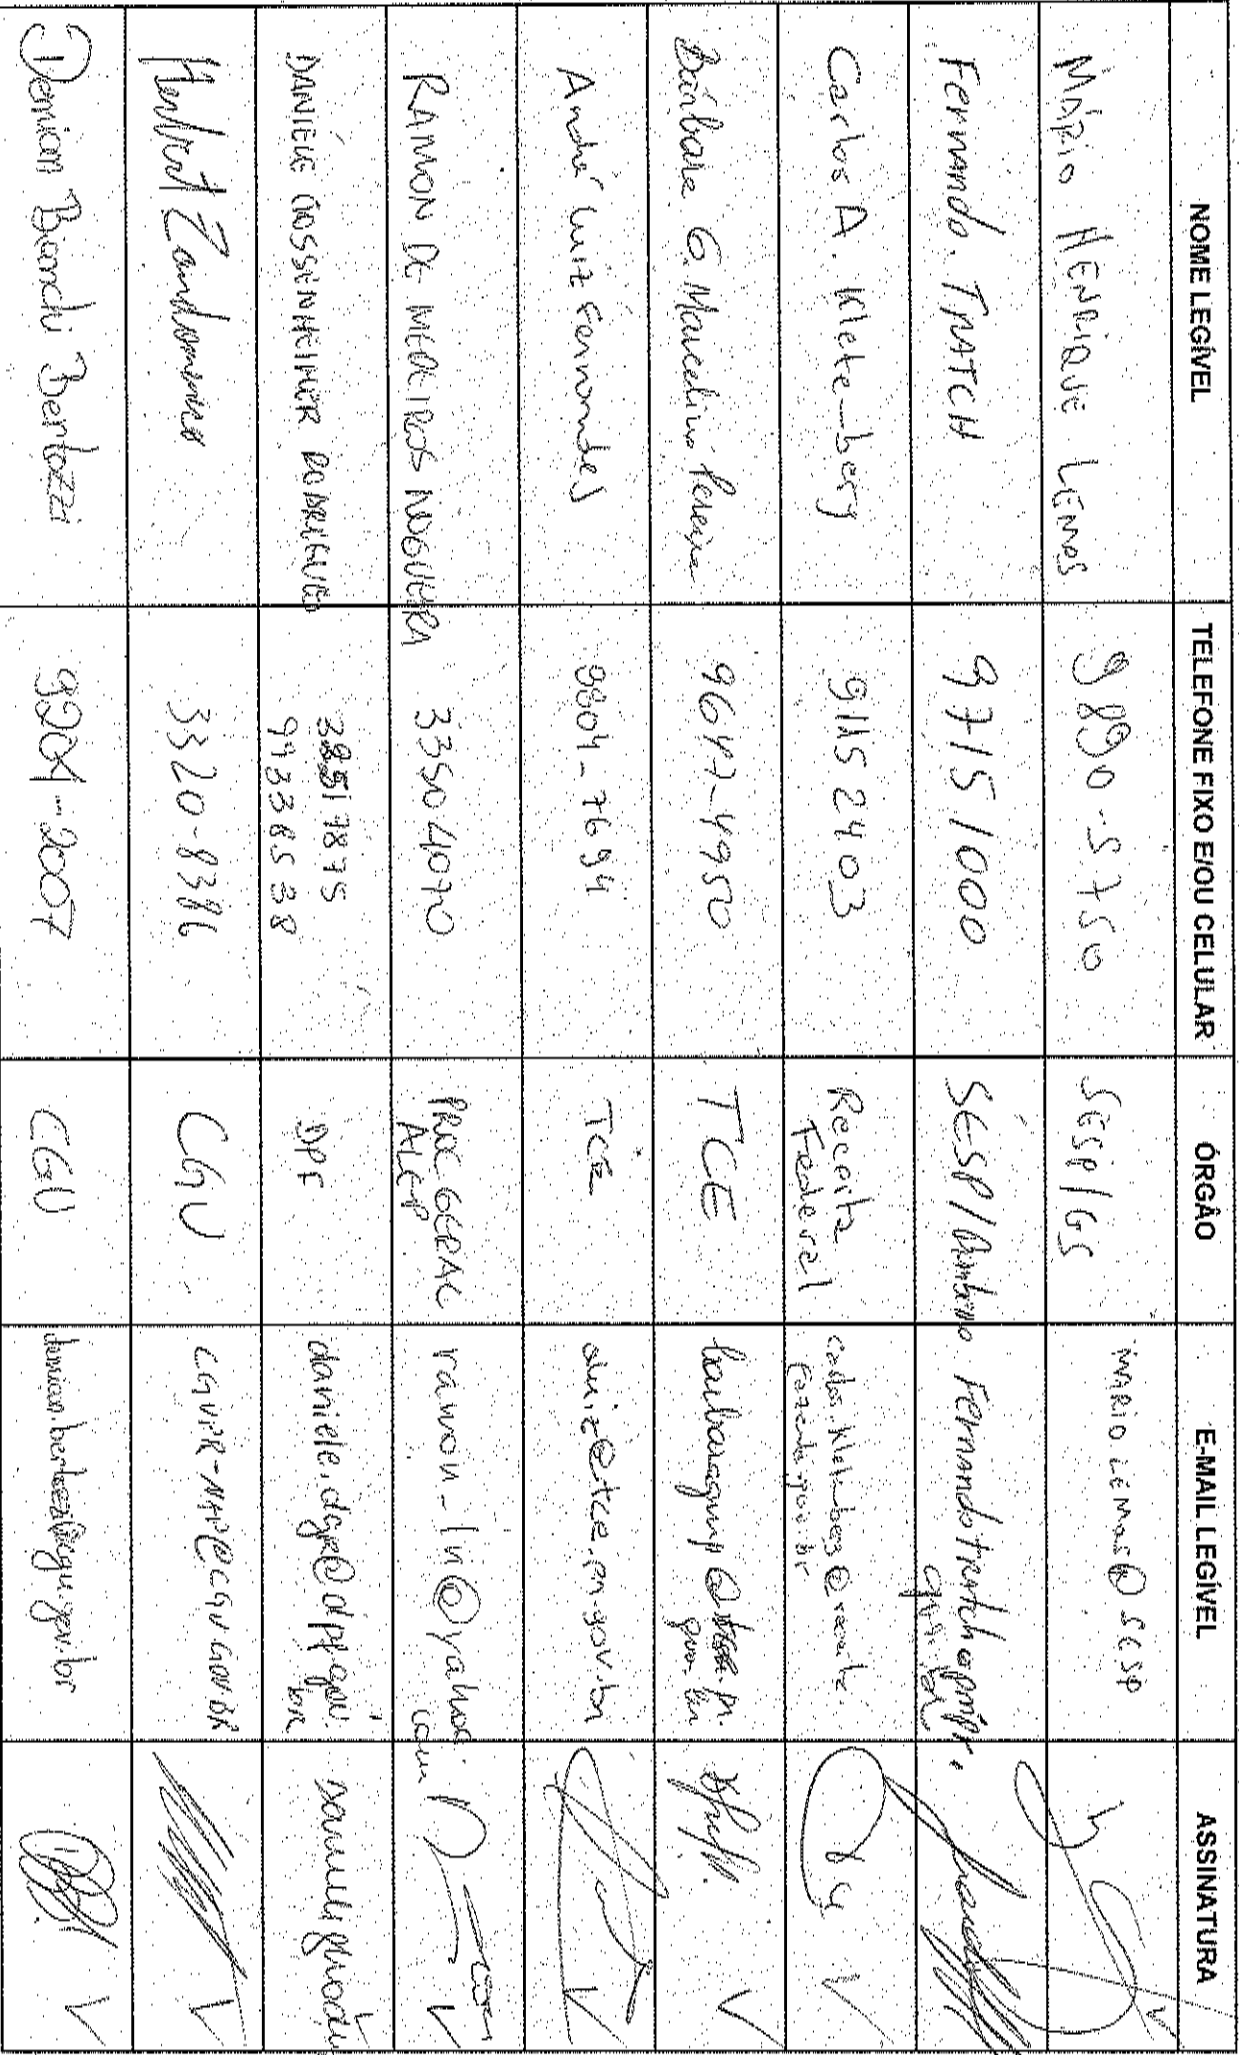 NOME LEGÍVEL TELEFONE FIXO E/OU CELULAR ÓRGÃO E-MAIL LEGÍVEL ASSINATURA
MÁRIO HENRIQUE LEMOS 9890-5750 SESP/GS MARIO LEMOS@SESP
Fernando. TRATCH 97151000 SESP/ Fernandotratch@pmpr.
Carlos A. Klete--berg 91152403 Receita
Federal
Bárbara G. Marcelino Pereira 9647-4950 TCE
gov.br
André Luiz Fernandes 9804-7694 TCE aluiz@tce.pr.gov.br
RAMON DE MEDEIROS NOGUEIRA 33504070 PROC GERAL ramon-ln@yahoo.
ALEP com
DANIELE GOSSENHEIMER RODRIGUES DPF daniele.dgr@dpf.gov.
99338538 br
Herbert 3320-8386 CGU CGUPR-NAP@CGU.GOV.BR
Demian Bianchi Bertozzi 9204-2007 CGU demian.bertozzi@cgu.gov.br